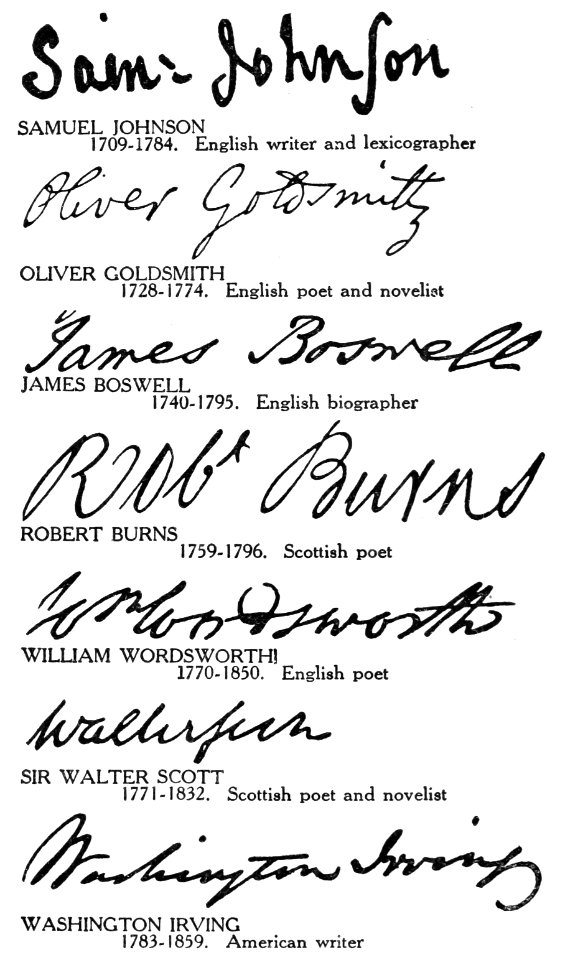 Sam: Johnson
SAMUEL JOHNSON
1709-1784. English writer and lexicographer
Oliver Goldsmith
OLIVER GOLDSMITH
1728-1774. English poet and novelist
James Boswell
JAMES BOSWELL
1740-1795. English biographer
Robt Burns
ROBERT BURNS
1759-1796. Scottish poet
Wm Wordsworth
WILLIAM WORDSWORTH
1770-1850. English poet
Walter Scott
SIR WALTER SCOTT
1771-1832. Scottish poet and novelist
Washington Irving
WASHINGTON IRVING
1783-1859. American writer